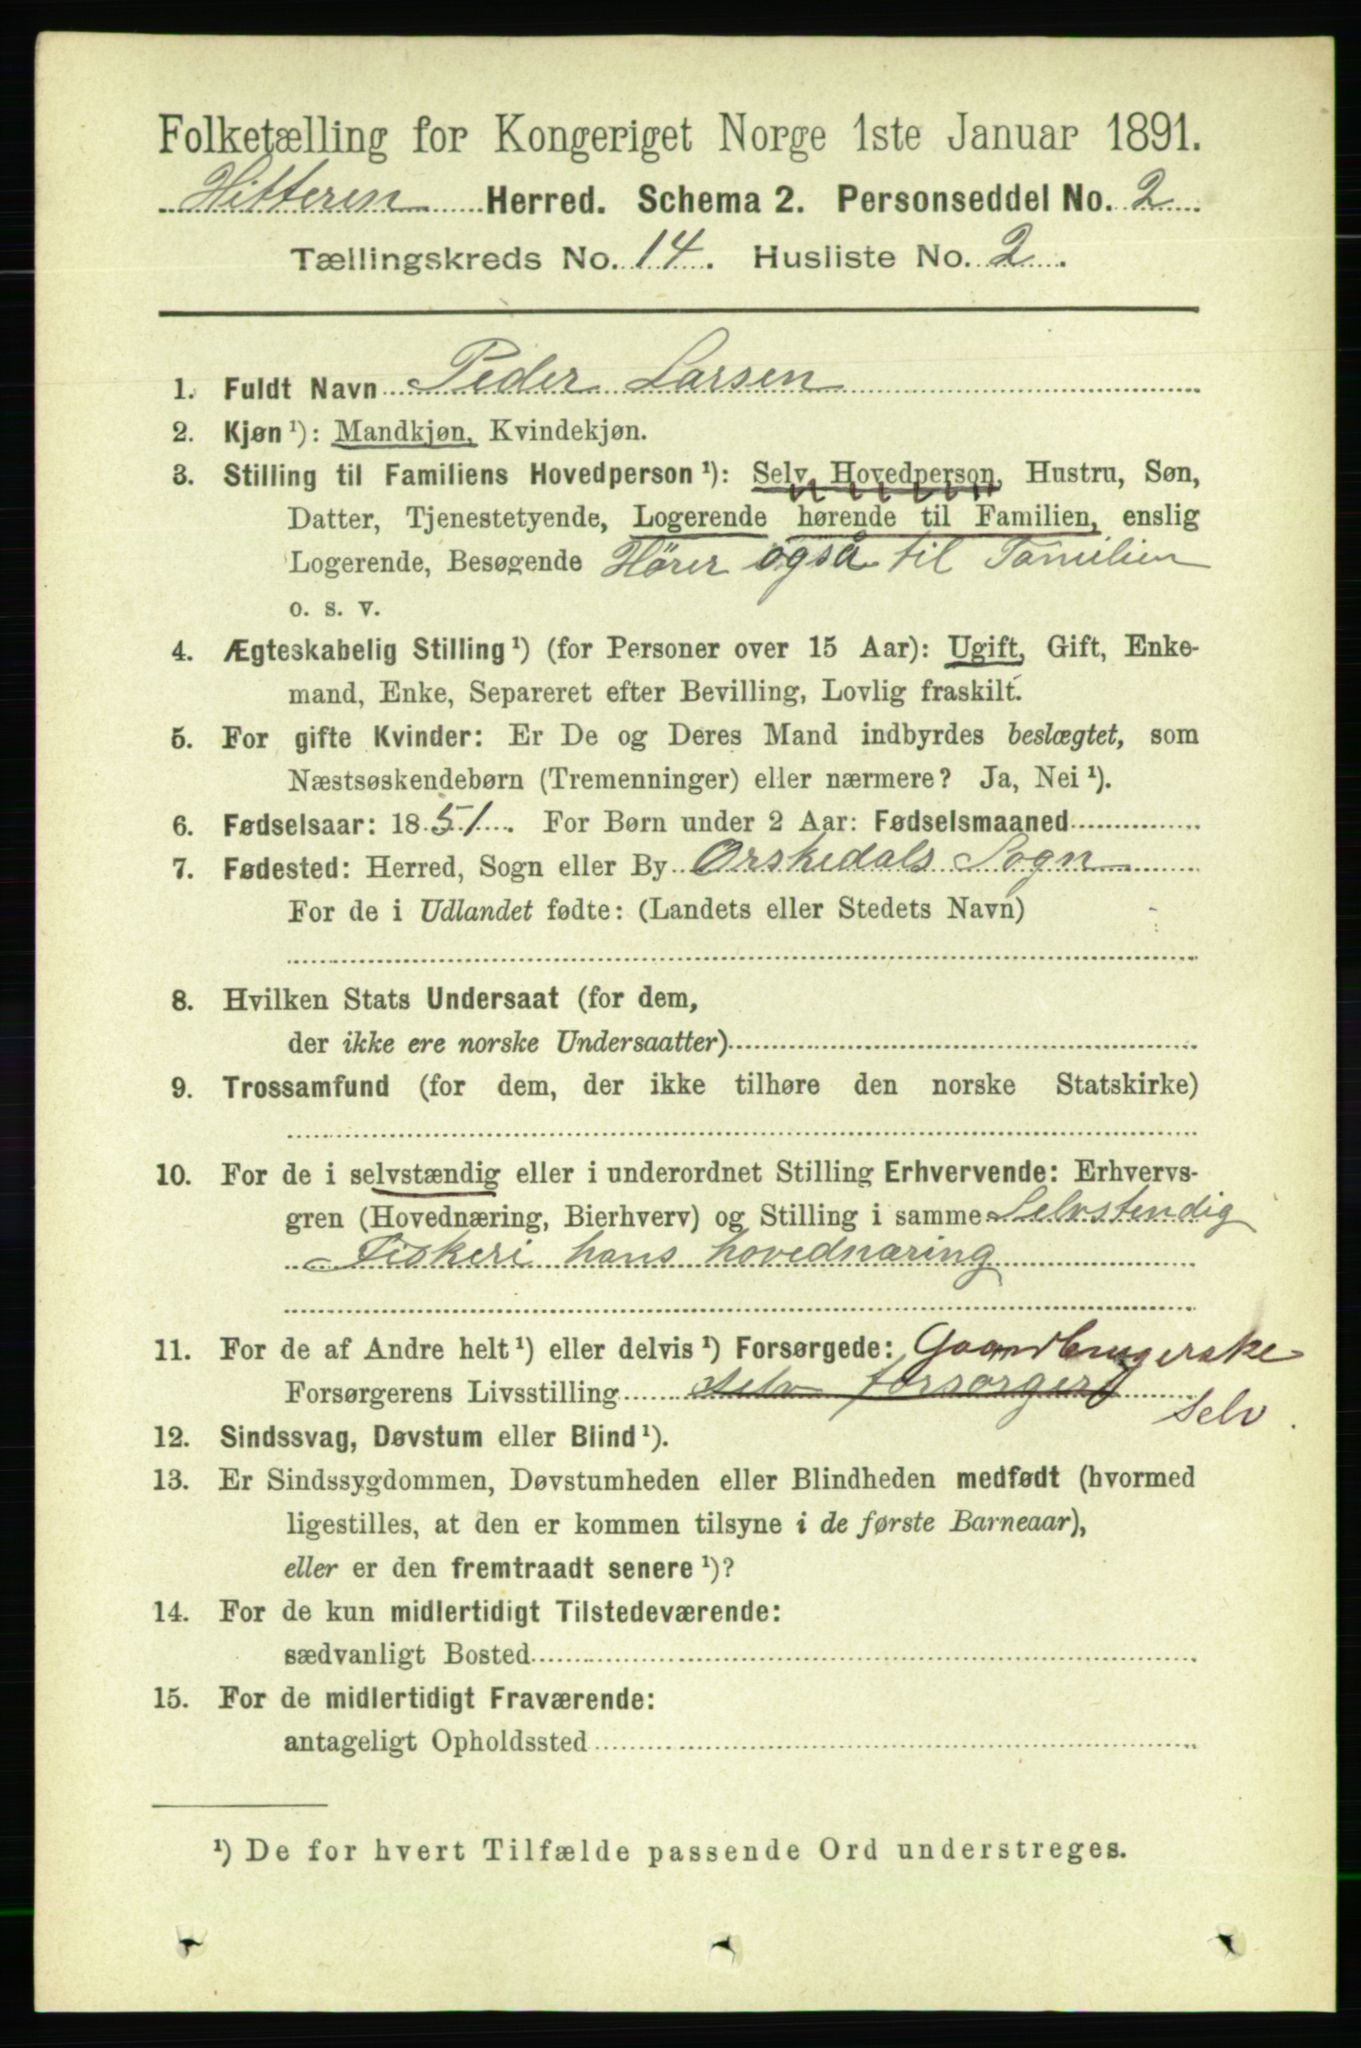 Folketælling for Kongeriget Norge 1ste Januar 1891.
Hitteren Herred. Schema 2. Personseddel No. 2
Tællingskreds No. 14. Husliste No. 2.
1. Fuldt Navn Peder Larsen
2. Kjøn ¹): Mandkjøn, Kvindekjøn.
3. Stilling til Familiens Hovedperson ¹): Selv, Hovedperson, Hustru, Søn,
Datter, Tjenestetyende, Logerende hørende til Familien, enslig
Logerende, Besøgende Hører også til Familien
o. s. v.
4. Ægteskabelig Stilling ¹) (for Personer over 15 Aar): Ugift, Gift, Enke-
mand, Enke, Separeret efter Bevilling, Lovlig fraskilt.
5. For gifte Kvinder: Er De og Deres Mand indbyrdes beslægtet, som
Næstsøskendebørn (Tremenninger) eller nærmere? Ja, Nei ¹).
6. Fødselsaar: 1851. For Børn under 2 Aar: Fødselsmaaned
7. Fødested: Herred, Sogn eller By Ørskedals Sogn
For de i Udlandet fødte: (Landets eller Stedets Navn)
8. Hvilken Stats Undersaat (for dem,
der ikke ere norske Undersaatter)
9. Trossamfund (for dem, der ikke tilhøre den norske Statskirke)
10. For de i selvstændig eller i underordnet Stilling Erhvervende: Erhvervs-
gren (Hovednæring, Bierhverv) og Stilling i samme Selvstendig
Fiskeri hans hovednæring
11. For de af Andre helt ¹) eller delvis ¹) Forsørgede: Gaardbrugerske
Forsørgerens Livsstilling Selv forsørger
Selv
12. Sindssvag, Døvstum eller Blind ¹).
13. Er Sindssygdommen, Døvstumheden eller Blindheden medfødt (hvormed
ligestilles, at den er kommen tilsyne i de første Barneaar),
eller er den fremtraadt senere ¹)?
14. For de kun midlertidigt Tilstedeværende:
sædvanligt Bosted
15. For de midlertidigt Fraværende:
antageligt Opholdssted
¹) De for hvert Tilfælde passende Ord understreges.